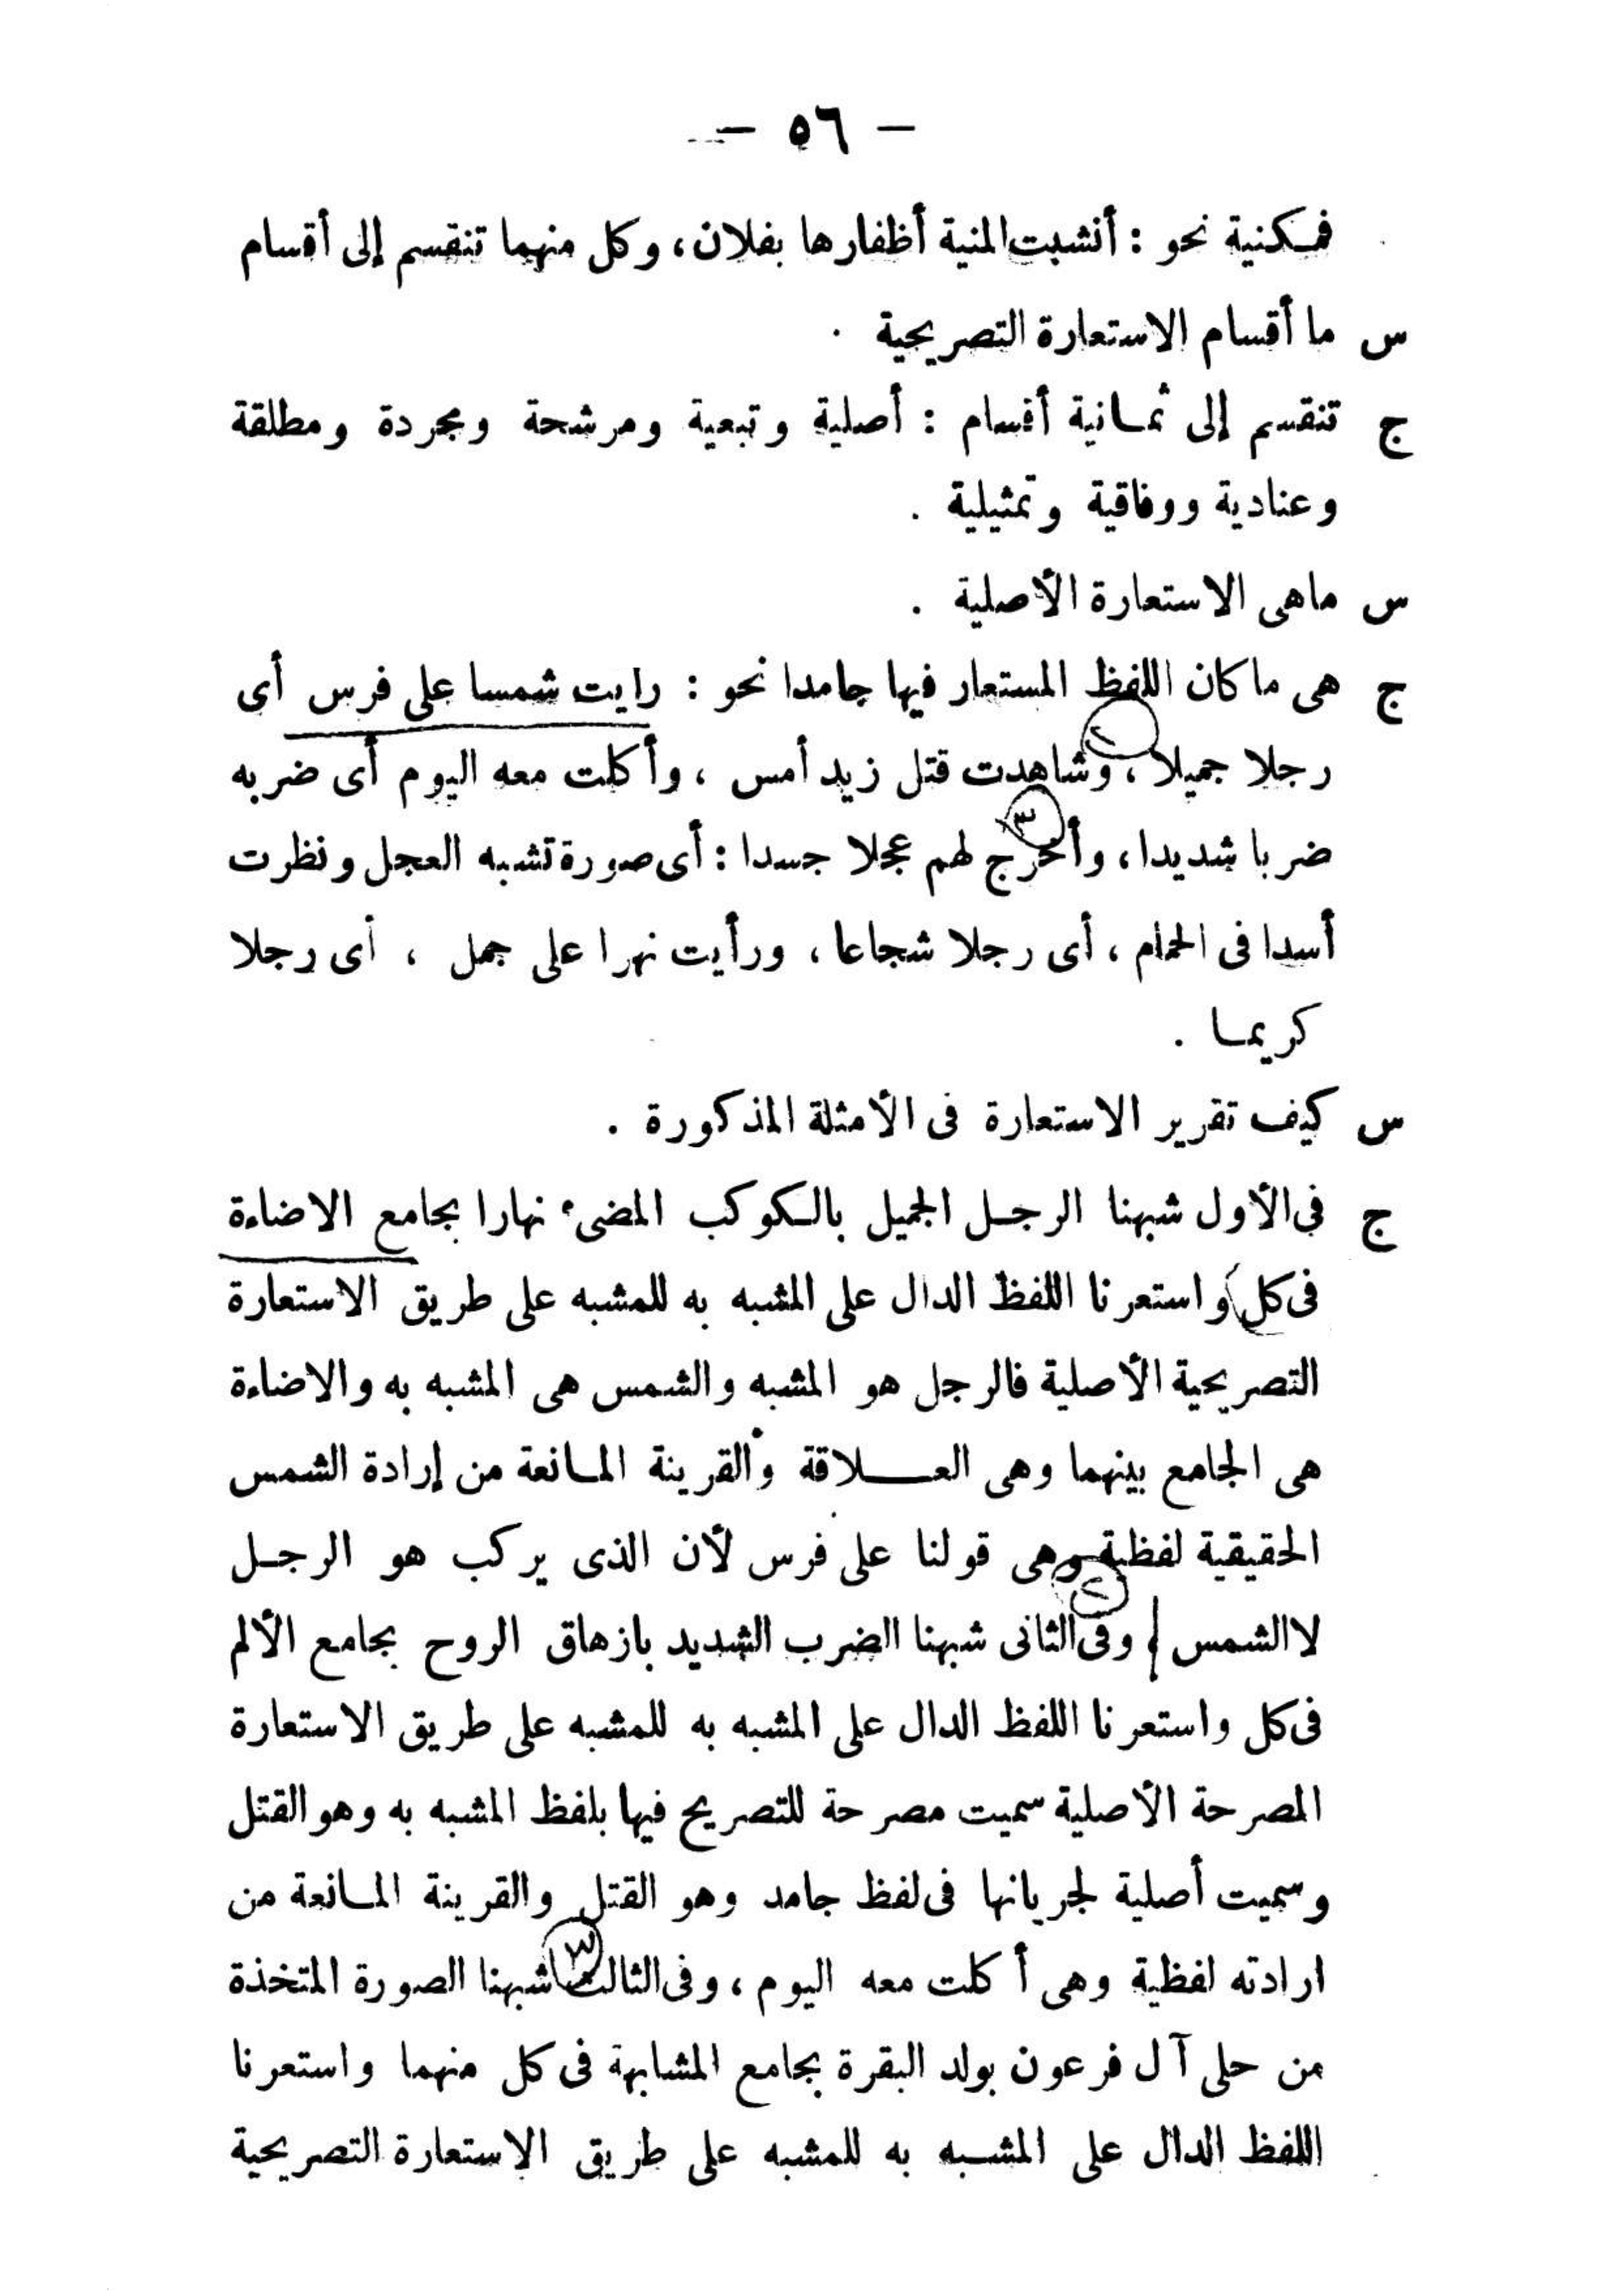 — ٥٦ —
فمكنية نحو : أنشبت المنية أظفارها بفلان ، وكل منهما تنقسم إلى أقسام
س ما أقسام الاستعارة التصريحية .
ج تنقسم إلى ثمانية أقسام : أصلية وتبعية ومرشحة ومجردة ومطلقة
وعنادية ووفاقية وتمثيلية .
س ماهى الاستعارة الأصلية .
ج هى ما كان اللفظ المستعار فيها جامدا نحو : رايت شمسا على فرس أى
٢
رجلا جميلا ، وشاهدت قتل زيد أمس ، وأكلت معه اليوم أى ضربه
٣
ضربا شديدا ، وأخرج لهم عجلا جسدا : أى صورة تشبه العجل ونظرت
أسدا فى الحمام ، أى رجلا شجاعا ، ورأيت نهرا على جمل ، أى رجلا
كريما .
س كيف تقرير الاستعارة فى الأمثلة المذكورة .
ج فى الأول شبهنا الرجل الجميل بالكوكب المضىء نهارا بجامع الاضاءة
فى كل واستعرنا اللفظ الدال على المشبه به للمشبه على طريق الاستعارة
التصريحية الأصلية فالرجل هو المشبه والشمس هى المشبه به والاضاءة
هى الجامع بينهما وهى العلاقة والقرينة المانعة من إرادة الشمس
الحقيقية لفظية وهى قولنا على فرس لأن الذى يركب هو الرجل
٢
لا الشمس / وفى الثانى شبهنا الضرب الشديد بازهاق الروح بجامع الألم
فى كل واستعرنا اللفظ الدال على المشبه به للمشبه على طريق الاستعارة
المصرحة الأصلية سميت مصرحة للتصريح فيها بلفظ المشبه به وهو القتل
وسميت أصلية لجريانها فى لفظ جامد وهو القتل والقرينة المانعة من
٣
ارادته لفظية وهى أكلت معه اليوم ، وفى الثالث شبهنا الصورة المتخذة
من حلى آل فرعون بولد البقرة بجامع المشابهة فى كل منهما واستعرنا
اللفظ الدال على المشبه به للمشبه على طريق الاستعارة التصريحية